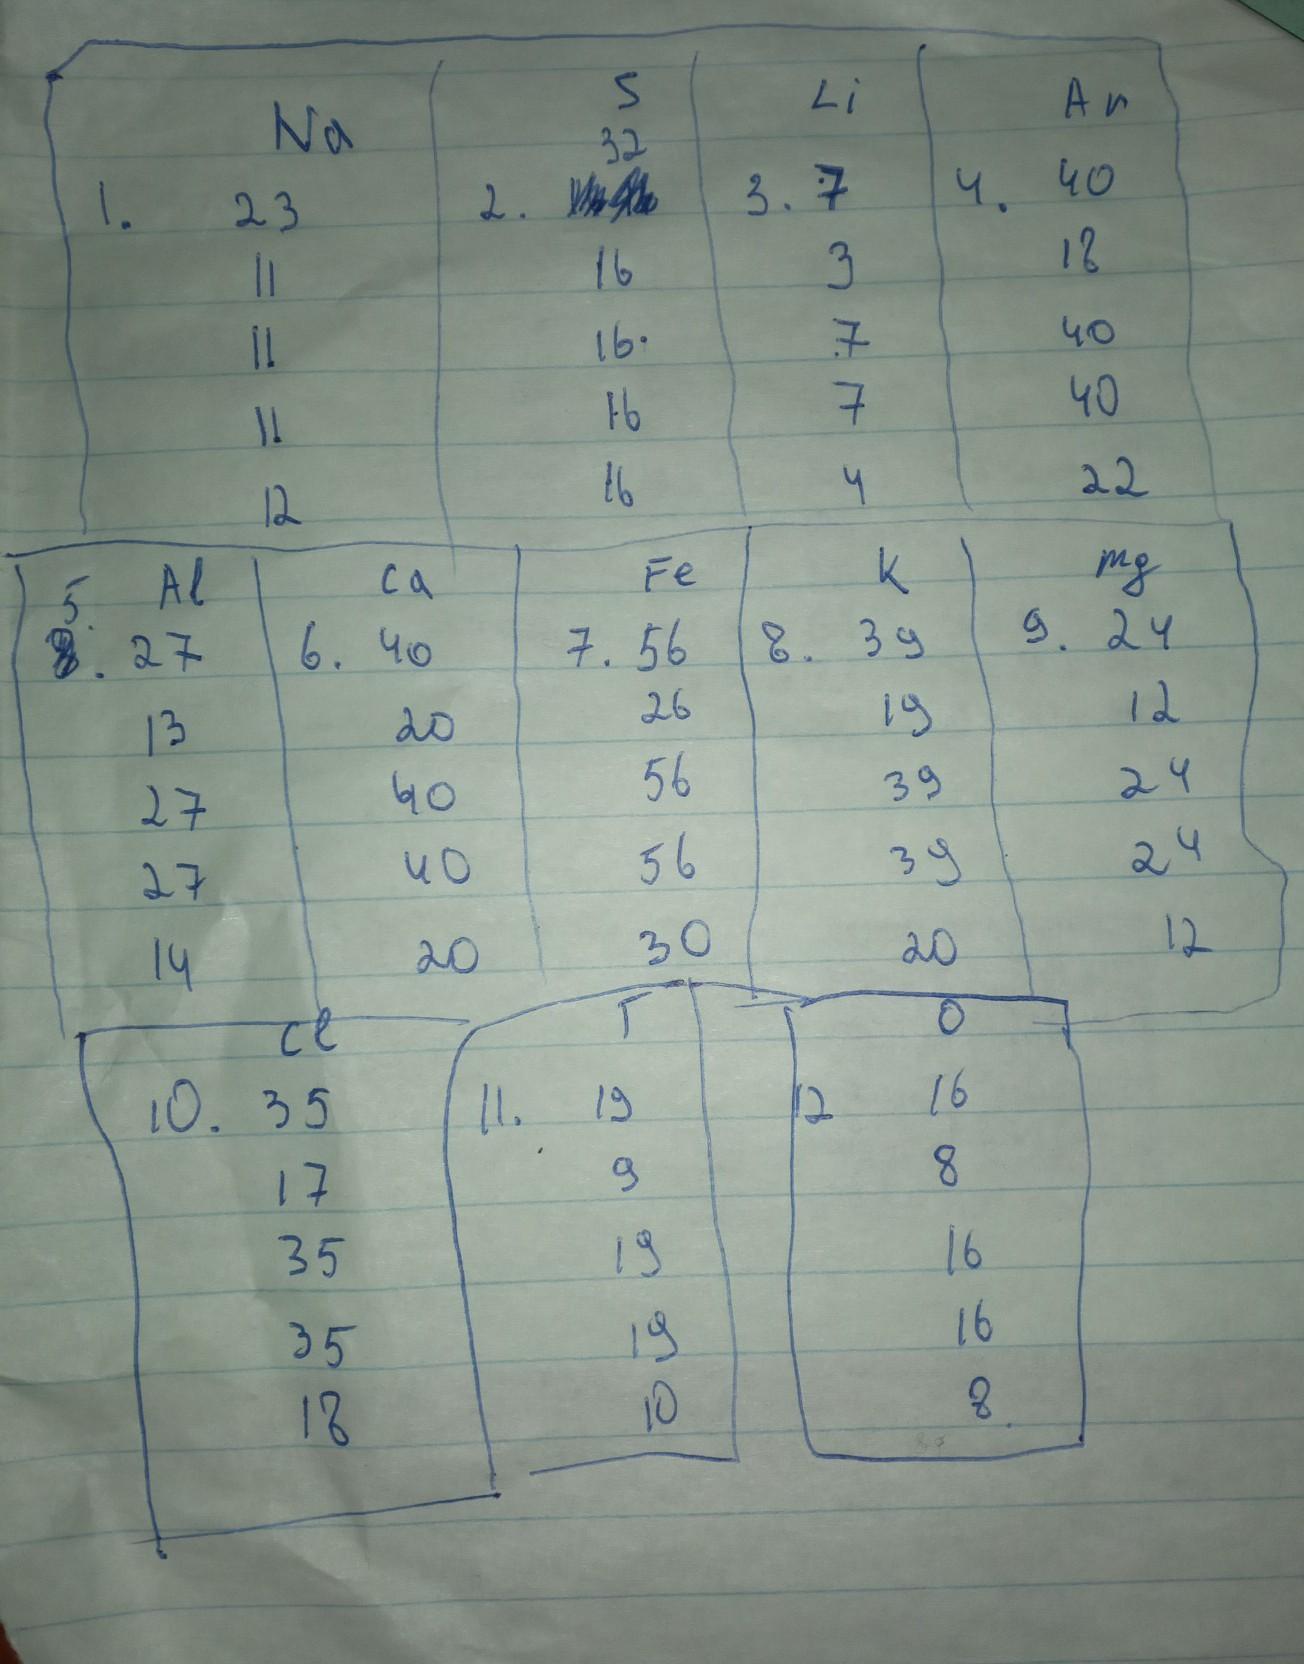 Na
1. 23
11
11
11
12
S
32
2.
16
16.
16
16
Li
3. 7
3
7
7
4
Ar
4. 40
18
40
40
22
Al
5. 27
13
27
27
14
Ca
6. 40
20
40
40
20
Fe
7. 56
26
56
56
30
K
8. 39
19
39
39
20
mg
9. 24
12
24
24
12
Cl
10. 35
17
35
35
18
F
11. 19
9
19
19
10
O
12 16
8
16
16
8.